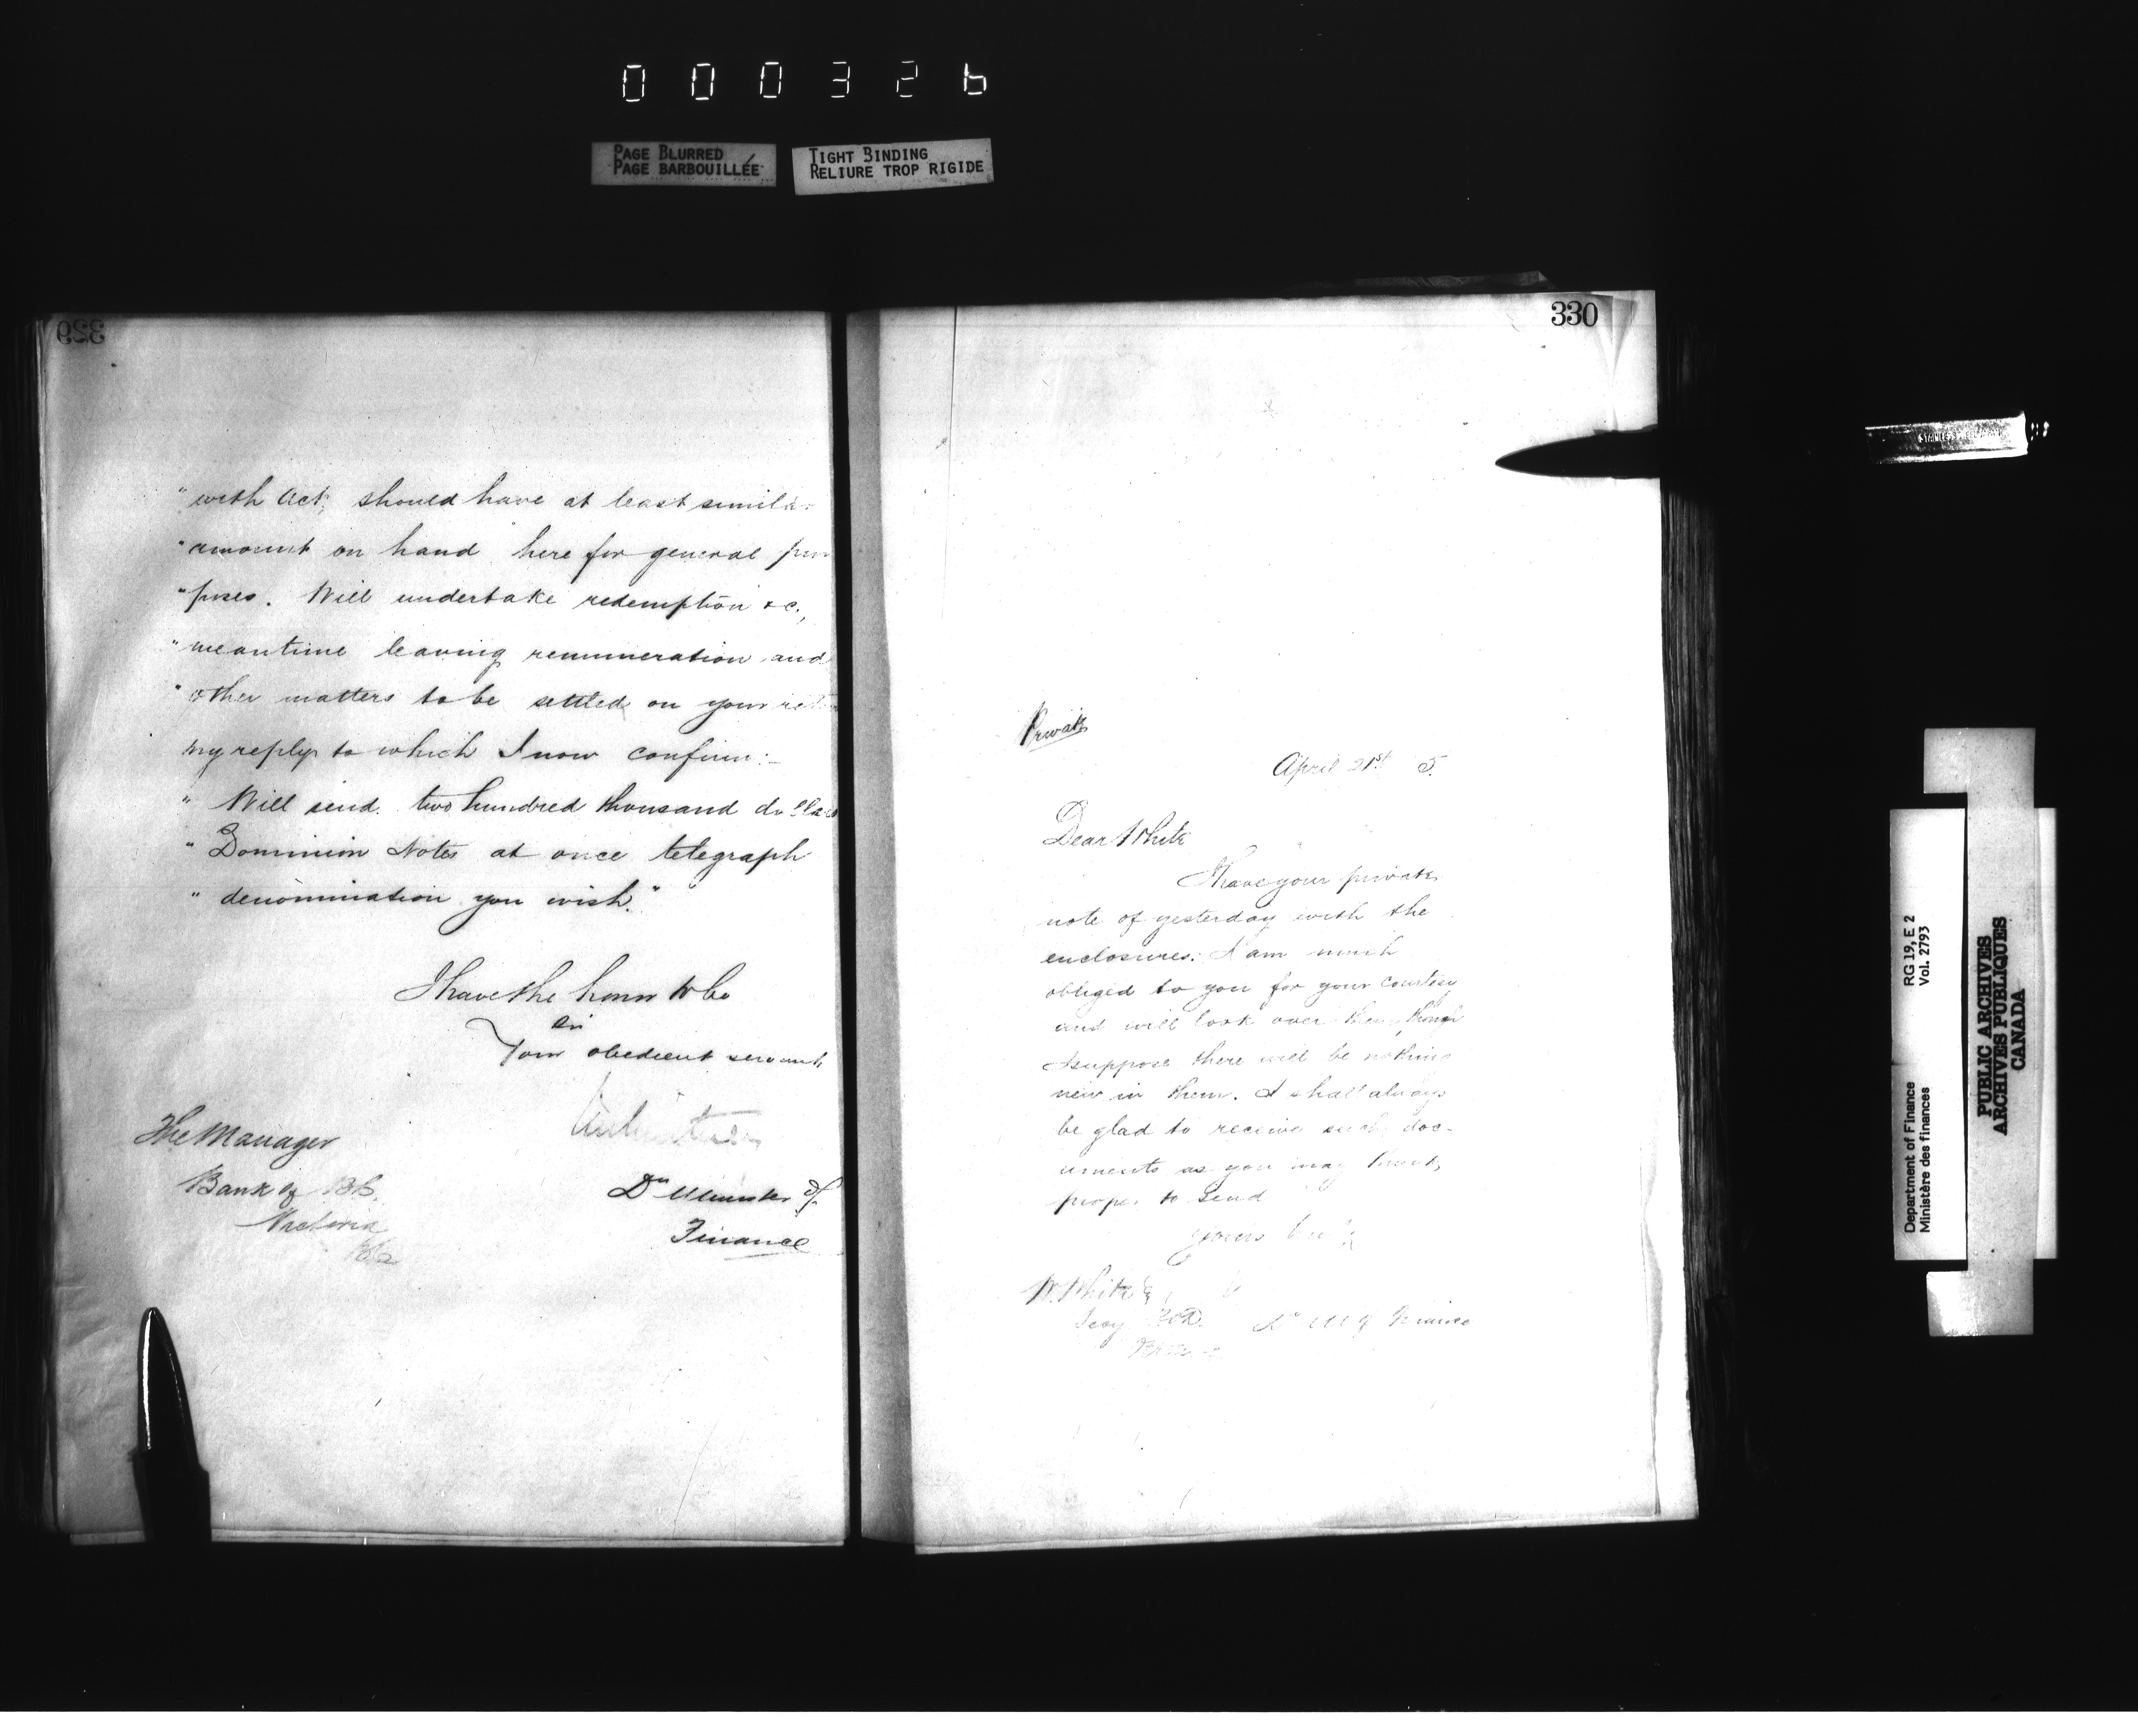 000326
PAGE BLURRED
PAGE BARBOUILLÉE
TIGHT BINDING
RELIURE TROP RIGIDE
329
"with Act, should have at least similar
"amount on hand here for general pur
"poses. Will undertake redemption &c.,
"meantime leaving remuneration and
"other matters to be settled on your
my reply to which I now confirm:-
" Will send two hundred thousand dollars
" Dominion Notes at once telegraph
" denomination you wish."
I have the honor to be
Sir
Your obedient servant
The Manager
Bank of B.C.
Victoria
B.C.
Dy Minister of
Finance
330
Private
April 21st 5.
Dear White
I have your private
note of yesterday with the
enclosures. I am much
obliged to you for your courtesy
and will look over them, though
I suppose there will be nothing
new in them. I shall always
be glad to receive such doc-
uments as you may think
proper to send
Yours
W. White
Secy P.O.D.
D M of Finance
STAINLESS
Department of Finance
Ministère des finances
RG 19, E 2
Vol. 2793
PUBLIC ARCHIVES
ARCHIVES PUBLIQUES
CANADA